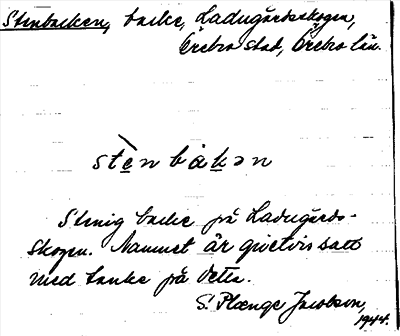 Stenbacken, backe, Ladugårdsskogen,
Örebro stad, Örebro län.
stènbakən
Stenig backe på Ladugårds-
skogen. Namnet är givetvis satt
med tanke på detta.
S. Plænge Jacobson,
1944.